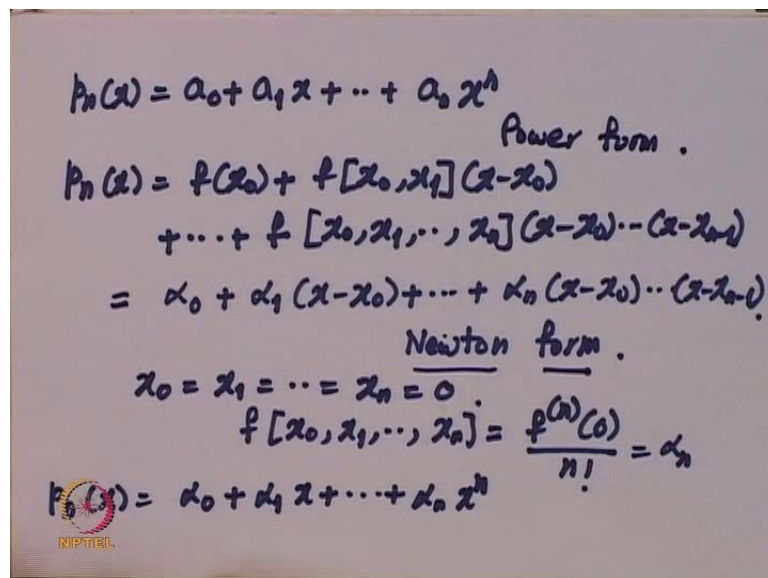 pn(x) = a0 + a1 x + ·· + an x^n
Power form .
pn(x) = f(x0) + f[x0,x1](x-x0)
+ ··· + f [x0,x1,··,xn](x-x0)··(x-xn-1)
= α0 + α1 (x-x0) + ··· + αn (x-x0)··(x-xn-1).
Newton form .
x0 = x1 = ·· = xn = 0 .
f [x0,x1,··,xn] = f^(n)(0) / n! = αn
pn(x) = α0 + α1 x + ··· + αn x^n
NPTEL